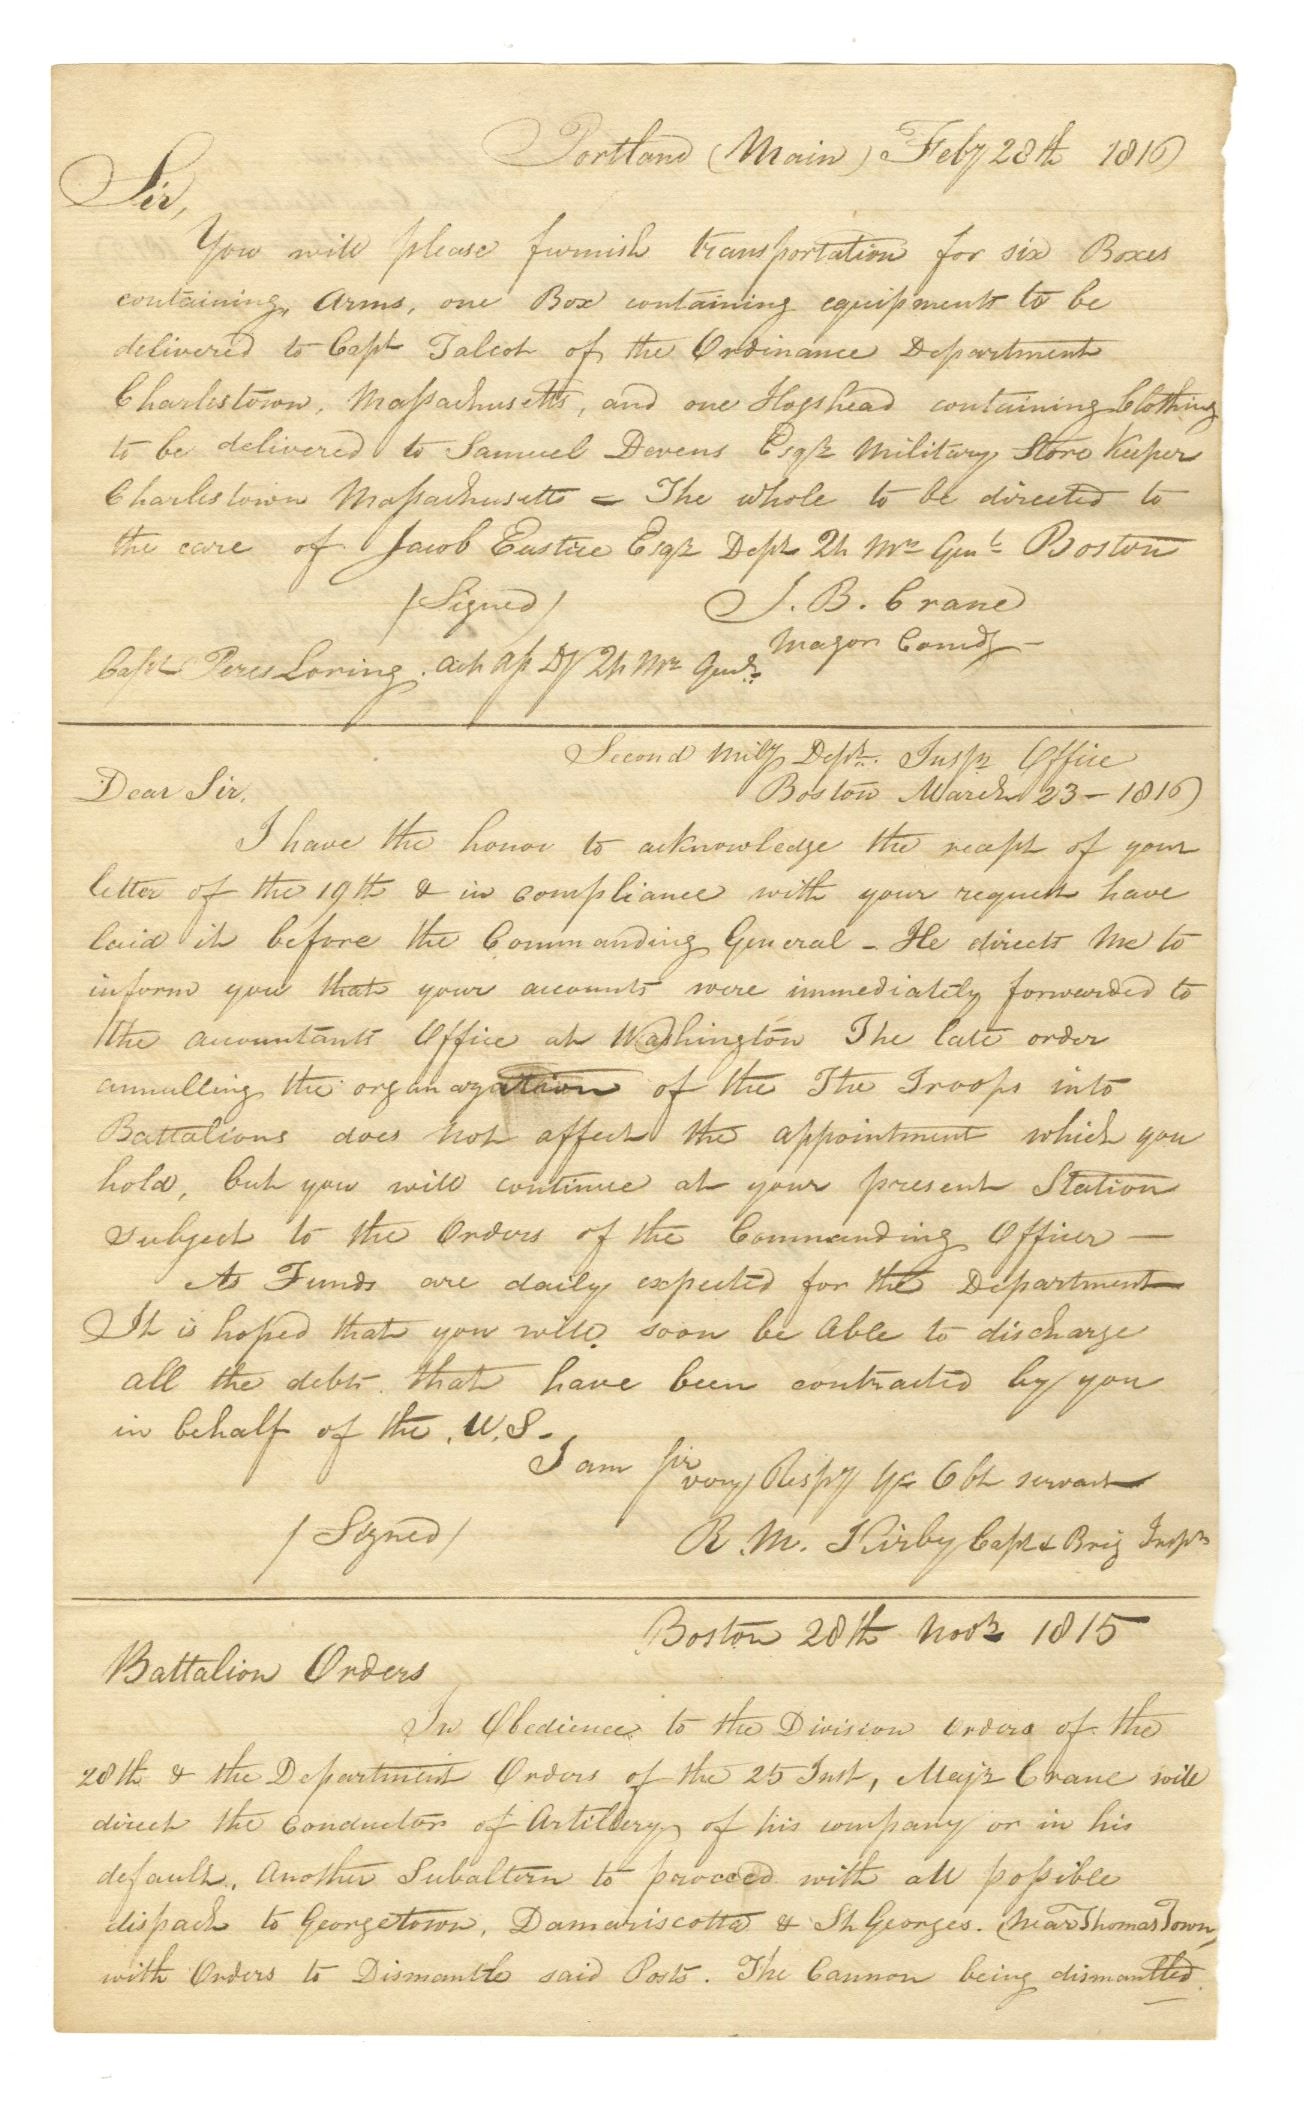 Portland (Main) Feby 28th 1816
Sir,
You will please furnish transportation for six Boxes
containing, Arms, one Box containing equipments to be
delivered to Capt Talcot of the Ordinance Department
Charlestown, Massachusetts, and one Hogshead containing Clothing
to be delivered to Samuel Devens Esqr Military Store Keeper
Charlestown Massachusetts = The whole to be directed to
the care of Jacob Eustice Esqr Dept Qr Mr Genl Boston
/Signed/ J. B. Crane
Major Comdg -
Capt Peres Loring. Act Dy Qr Mr
Second Mily Dept. Inspr Office
Boston March 23 - 1816
Dear Sir,
I have the honor to acknowledge the recept of your
letter of the 19th & in compliance with your request have
laid it before the Commanding General - He directs me to
inform you that your accounts were immediately forwarded to
the accountants Office at Washington The late order
annulling the organazation of the The Troops into
Battalions does not affect the appointment which you
hold, but you will continue at your present Station
subject to the Orders of the Commanding Officer -
As Funds are daily expected for the Department
It is hoped that you will soon be Able to discharge
all the debts that have been contracted by you
in behalf of the .U.S.
I am Sir
very Respy Yr Obt servant
/Signed/ R. M. Kirby Capt & Brig Inspr
Boston 28th Novr 1815
Battalion Orders
In Obedience to the Division Orders of the
28th & the Department Orders of the 25 Inst, Majr Crane will
direct the Conductor of Artillery of his company or in his
default, Another Subaltern to proceed with all possible
dispach to Georgetown, Damariscotta & St Georges. Near Thomas Town,
with Orders to Dismantle said Posts. The Cannon being dismantled.